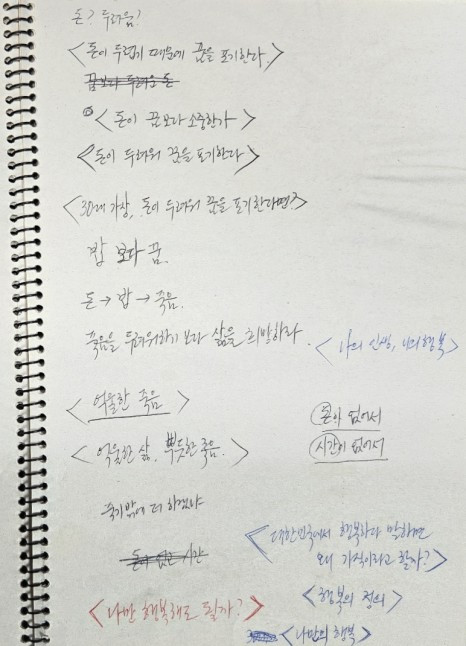 돈? 두려움?
<돈이 두렵기 때문에 꿈을 포기한다.>
꿈보다 두려운 돈
<돈이 꿈보다 소중한가>
<돈이 두려워 꿈을 포기한다>
<30대 가상, 돈이 두려워 꿈을 포기한다면?>
밥 보다 꿈.
돈→밥→죽음.
죽음을 두려워하기 보다 삶을 희망하라.
<나의 인생, 나의 행복>
<억울한 죽음>
돈이 없어서
<억울한 삶, 뿌듯한 죽음.>
시간이 없어서
죽기밖에 더 하겠냐
<대한민국에서 행복하다 말하면
왜 가식이라고 할까?>
돈이 없고 시간
<행복의 정의>
<나만 행복해도 될까?>
<나만의 행복>